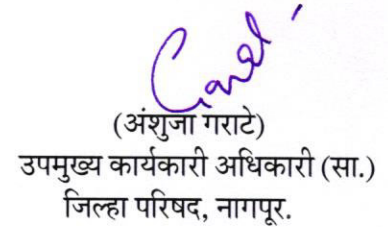 (अंशुजा गराटे)
उपमुख्य कार्यकारी अधिकारी (सा.)
जिल्हा परिषद, नागपूर.